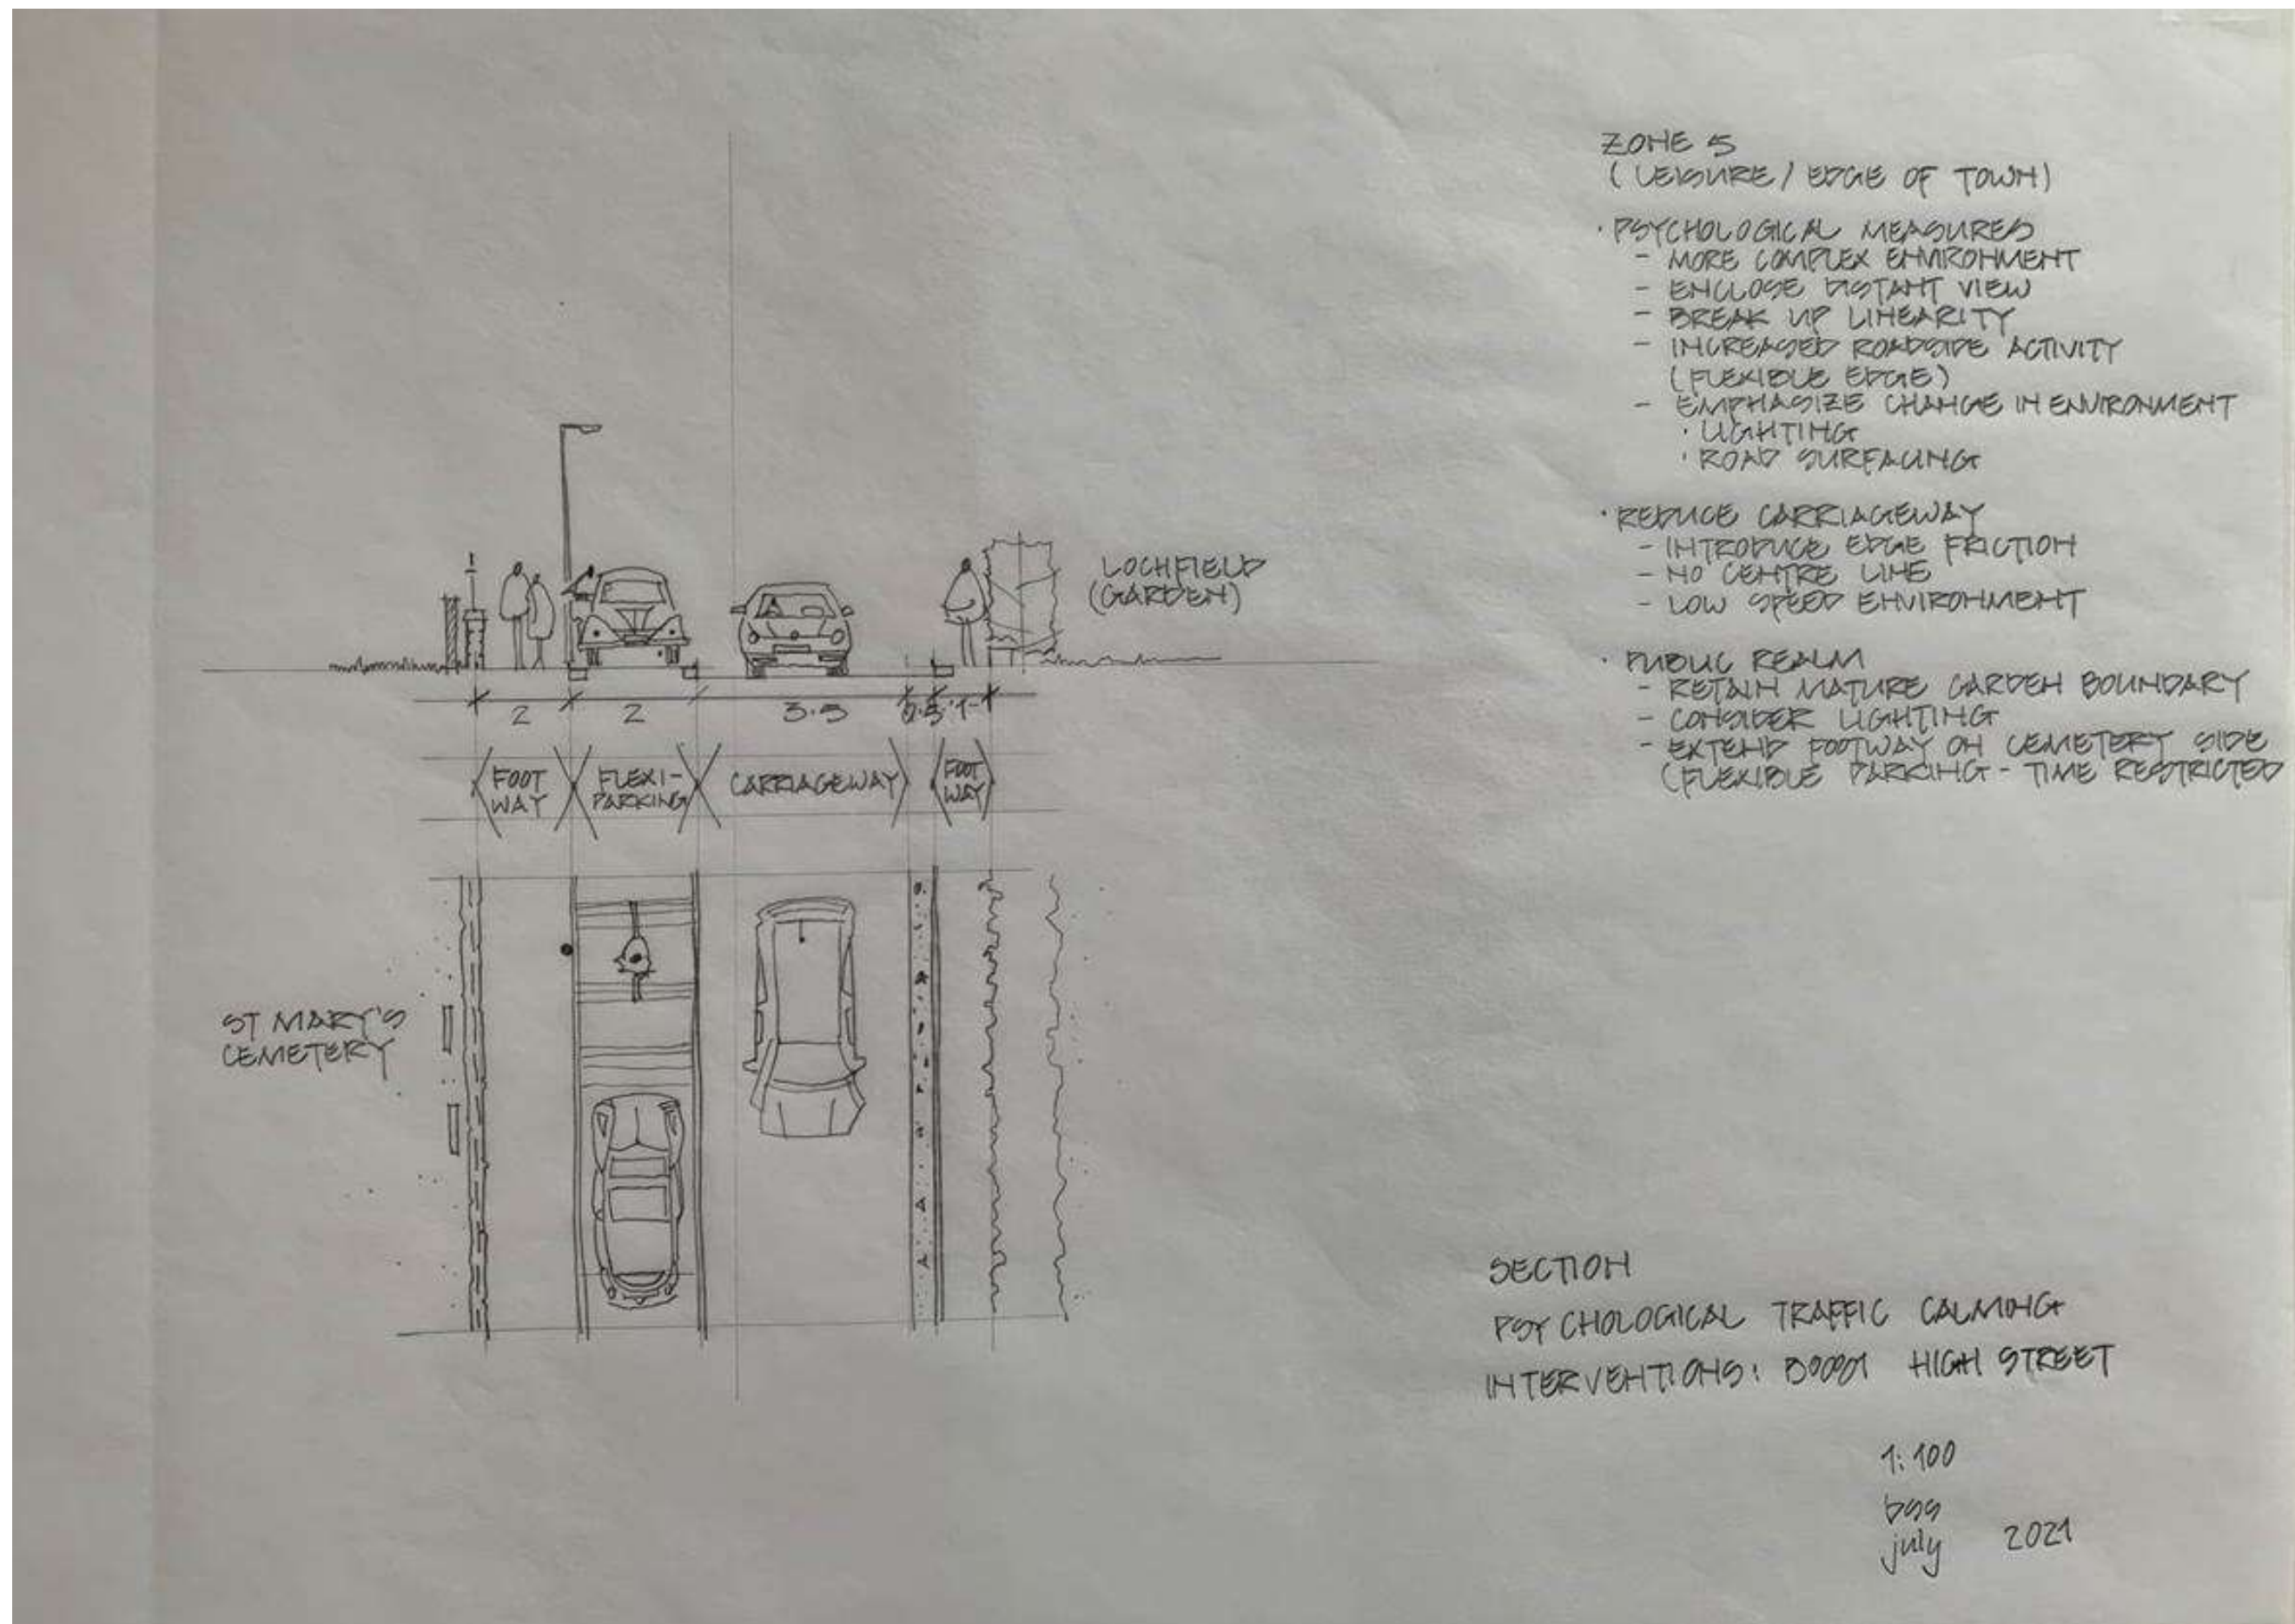 ZONE 5
(LEISURE / EDGE OF TOWN)
· PSYCHOLOGICAL MEASURES
- MORE COMPLEX ENVIRONMENT
- ENCLOSE DISTANT VIEW
- BREAK UP LINEARITY
- INCREASED ROADSIDE ACTIVITY
(FLEXIBLE EDGE)
- EMPHASIZE CHANGE IN ENVIRONMENT
· LIGHTING
· ROAD SURFACING
· REDUCE CARRIAGEWAY
- INTRODUCE EDGE FRICTION
- NO CENTRE LINE
- LOW SPEED ENVIRONMENT
· PUBLIC REALM
- RETAIN MATURE GARDEN BOUNDARY
- CONSIDER LIGHTING
- EXTEND FOOTWAY ON CEMETERY SIDE
(FLEXIBLE PARKING - TIME RESTRICTED
LOCHFIELD
(GARDEN)
2 2 3.5 0.5 1
FOOT
WAY
FLEXI-
PARKING
CARRIAGEWAY
FOOT
WAY
ST MARY'S
CEMETERY
SECTION
PSYCHOLOGICAL TRAFFIC CALMING
INTERVENTIONS: HIGH STREET
1:100
bss
july 2021